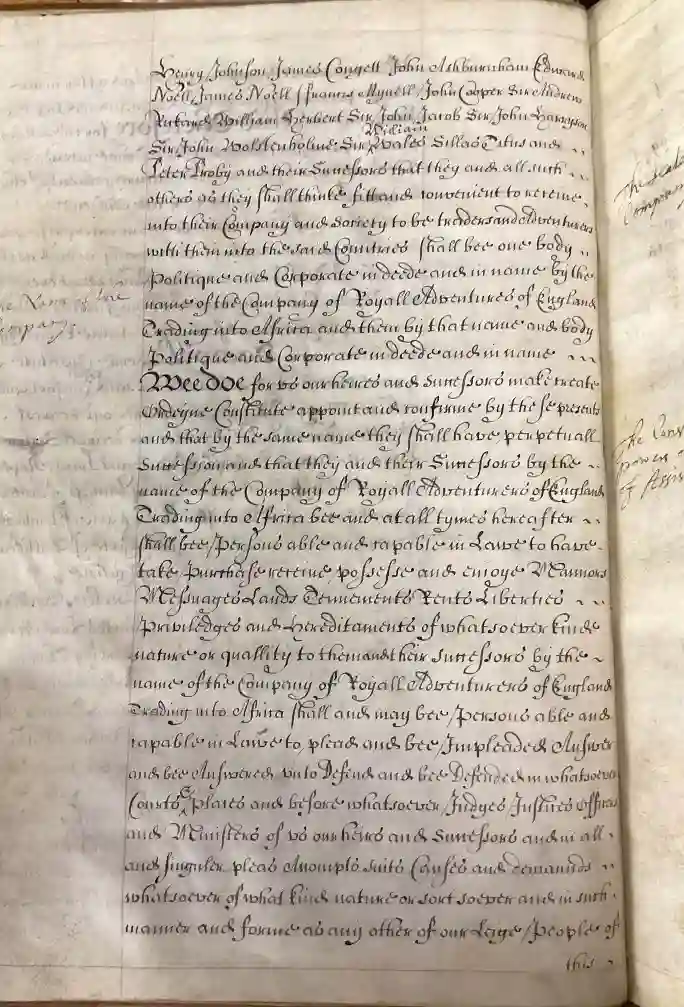 Henry Johnson James Congell John Ashburnham Edward
Noell James Noell ffrancis Mynell John Cooper Sir Andrew
Rickard William Herbert Sir John Jacob Sir John Harrison
Sir John Wolstenholme Sir William Wales Sillas Titus and
Peter Proby and their Successors that they and all such
others as they shall thinke fitt and convenient to receive
into their Company and Society to be traders and Adventurers
with them into the said Countries shall bee one body
Politique and Corporate in deede and in name by the
name of the Company of Royall Adventures of England
Trading into Africa and them by that name and body
Politique and Corporate in deede and in name
Wee doe for us our heires and Successors make create
Ordeyne Constitute appoint and confirme by these presents
and that by the same name they shall have perpetuall
Succession and that they and their Successors by the
name of the Company of Royall Adventurers of England
Trading into Africa bee and at all tymes hereafter
shall bee Persons able and capable in Lawe to have
take Purchase receive possesse and enioye Mannors
Messuages Lands Tennements Rents Liberties
Priviledges and Hereditaments of whatsoever kinde
nature or quallity to them and their Successors by the
name of the Company of Royall Adventurers of England
Trading into Africa shall and may bee Persons able and
capable in Lawe to plead and bee Impleaded Answer
and bee Answered unto Defend and bee Defended in whatsoever
Courts & places and before whatsoever Judges Justices Officers
and Ministers of us our heirs and Successors and in all
and singuler pleas Accompts suits Causes and demands
whatsoever of what kind nature or sort soever and in such
manner and forme as any other of our Leige People of
this
The Name of the
Company
The
Company
The
power
of